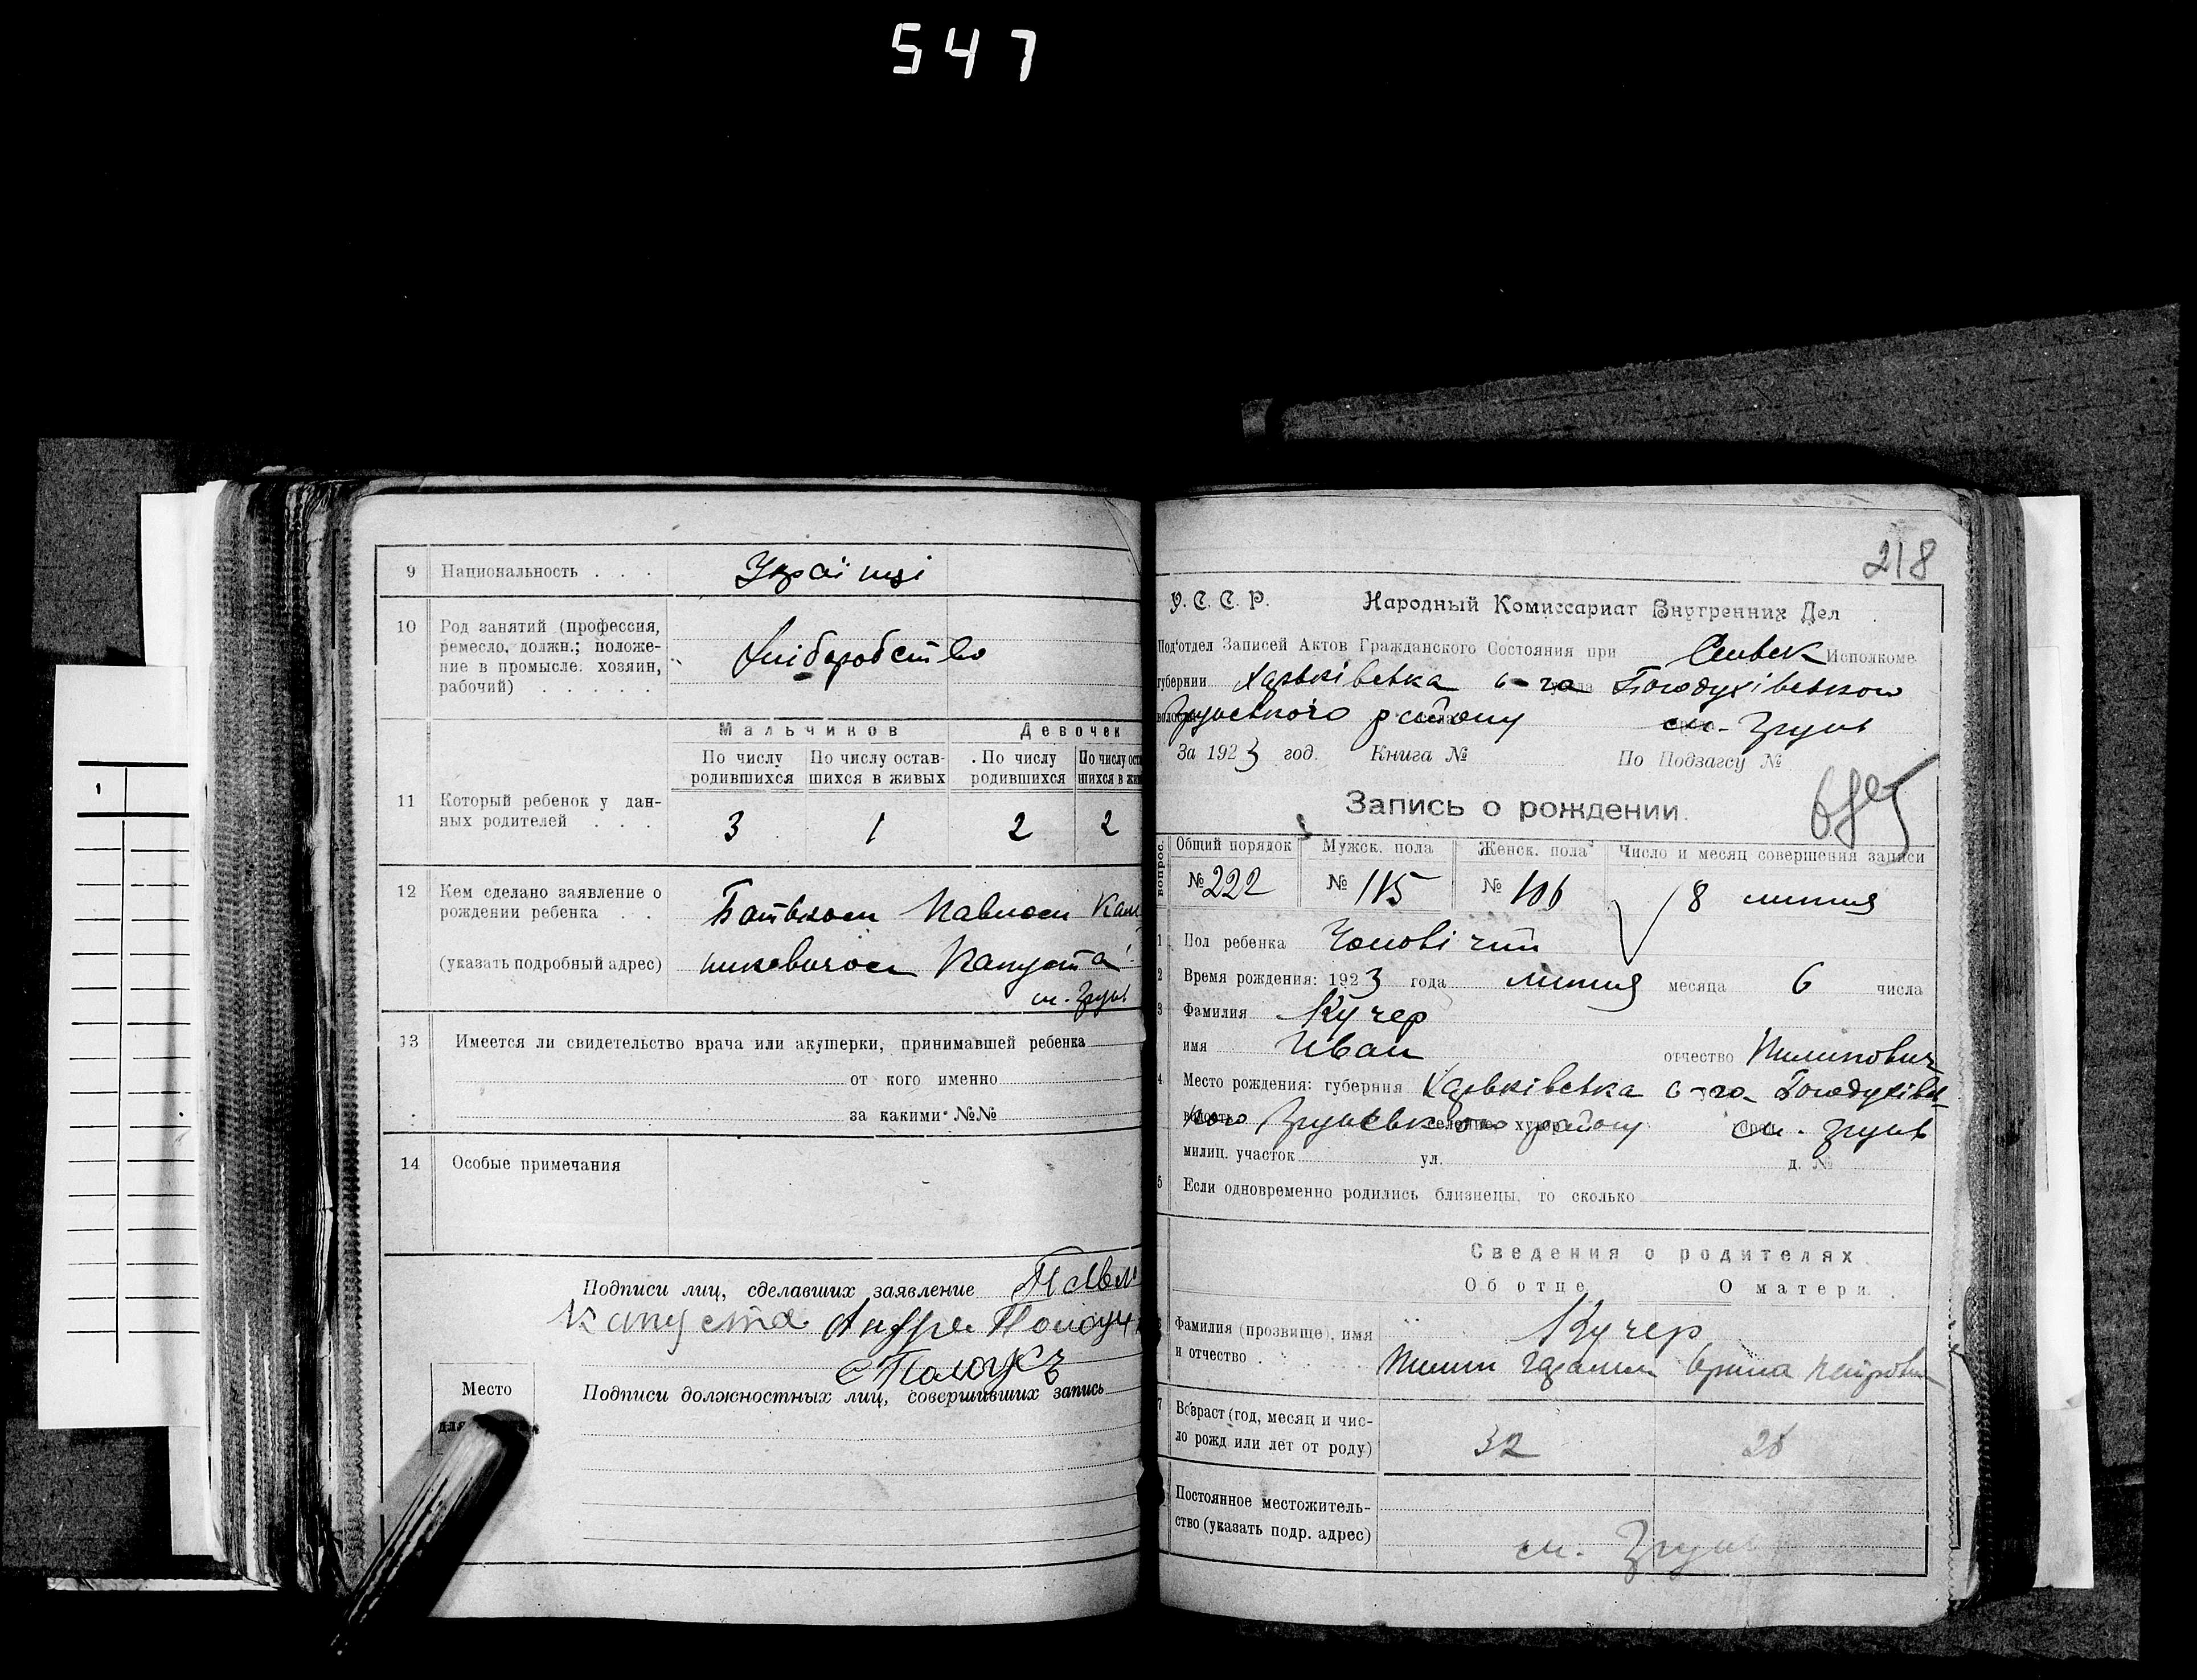 547
9 Национальность . . . Українці
10 Род занятий (профессия,
ремесло, должн.; положе-
ние в промысле: хозяин,
рабочий) . . . . .
Хліборобство
Мальчиков Девочек
По числу родившихся По числу остав-шихся в живых По числу родившихся По числу ост
11 Который ребенок у дан-
ных родителей . . .
3 1 2 2
12 Кем сделано заявление о
рождении ребенка . .
(указать подробный адрес)
Батьком Павлом
Капуста
см. Згунь
13 Имеется ли свидетельство врача или акушерки, принимавшей ребенка
от кого именно
за какими №№
14 Особые примечания
Подписи лиц, сделавших заявление Павл
Капуста Андрей
Подписи должностных лиц, совершивших запись
Место
для
218
У. С. С. Р. Народный Комиссариат Внутренних Дел
Под'отдел Записей Актов Гражданского Состояния при Исполкоме
губернии Харьківська Богодухівського
району см. Згунь
За 1923 год. Книга № По Подзагсу №
Запись о рождении.
вопрос. Общий порядок Мужск. пола Женск. пола Число и месяц совершения записи
№ 222 № 115 № 106 8 липня
1 Пол ребенка Чоловічий
2 Время рождения: 1923 года липня месяца 6 числа
3 Фамилия Кучер
имя Иван отчество Пилипович
4 Место рождения: губерния Харьківська
району см. Згунь
милиц. участок ул. д. №
5 Если одновременно родились близнецы, то сколько
Сведения о родителях.
Об отце О матери.
Фамилия (прозвище), имя
и отчество . . . .
Кучер
Пилип
7 Возраст (год, месяц и чис-
ло рожд или лет от роду)
32
Постоянное местожитель-
ство (указать подр. адрес)
см. Згунь